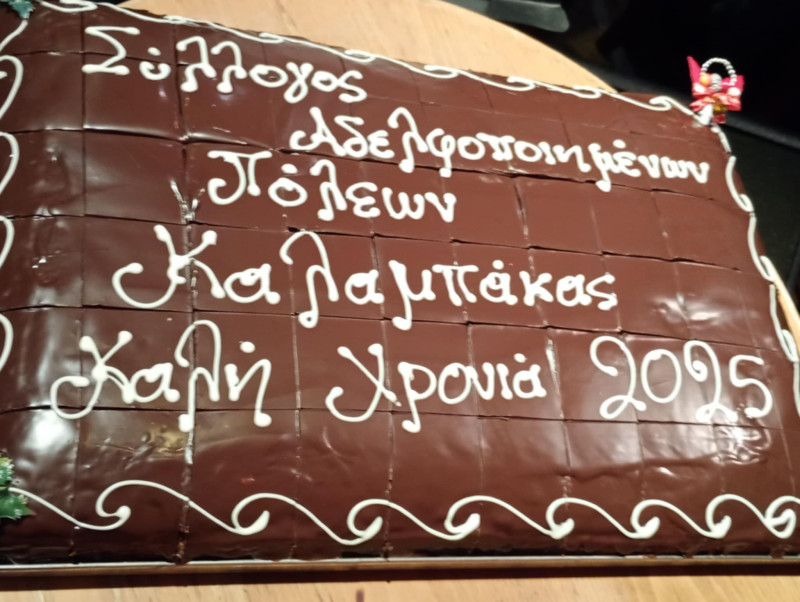 Σύλλογος
Αδελφοποιημένων
Πόλεων
Καλαμπάκας
Καλή χρονιά 2025